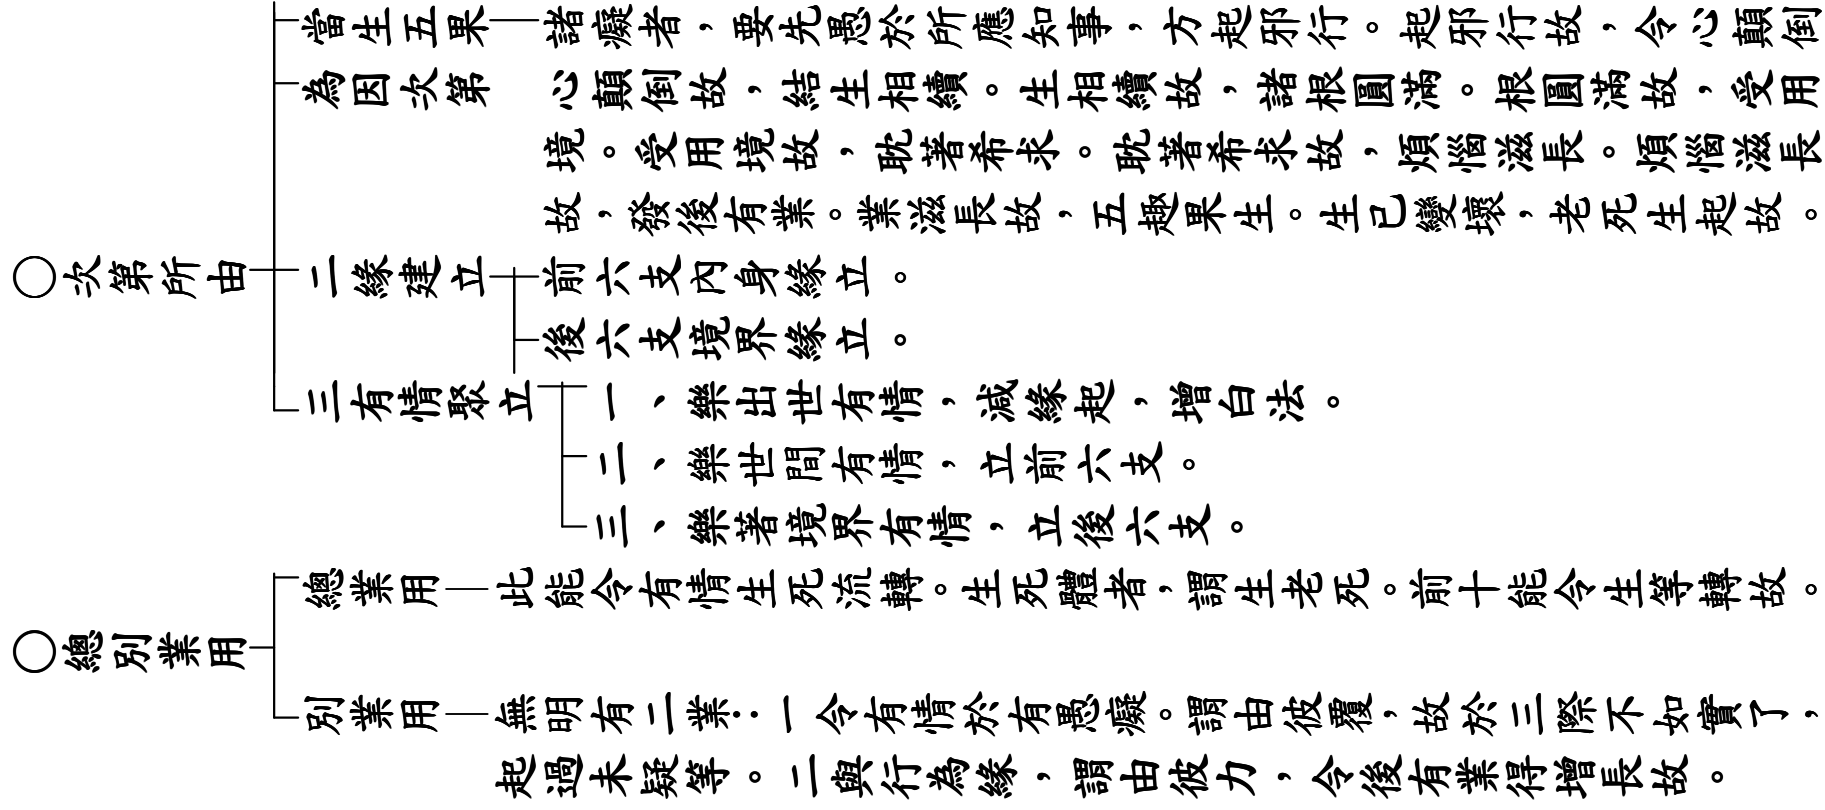 當生五果 諸癡者，要先愚於所應知事，方起邪行。起邪行故，令心顛倒
為因次第 心顛倒故，結生相續。生相續故，諸根圓滿。根圓滿故，受用
境。受用境故，耽著希求。耽著希求故，煩惱滋長。煩惱滋長
故，發後有業。業滋長故，五趣果生。生已變壞，老死生起故。
○次第所由 二緣建立 前六支內身緣立。
後六支境界緣立。
三有情聚立 一、樂出世有情，減緣起，增白法。
二、樂世間有情，立前六支。
三、樂著境界有情，立後六支。
總業用 此能令有情生死流轉。生死體者，謂生老死。前十能令生等轉故。
○總別業用
別業用 無明有二業：一令有情於有愚癡。謂由彼覆，故於三際不如實了，
起過未疑等。二與行為緣，謂由彼力，令後有業得增長故。